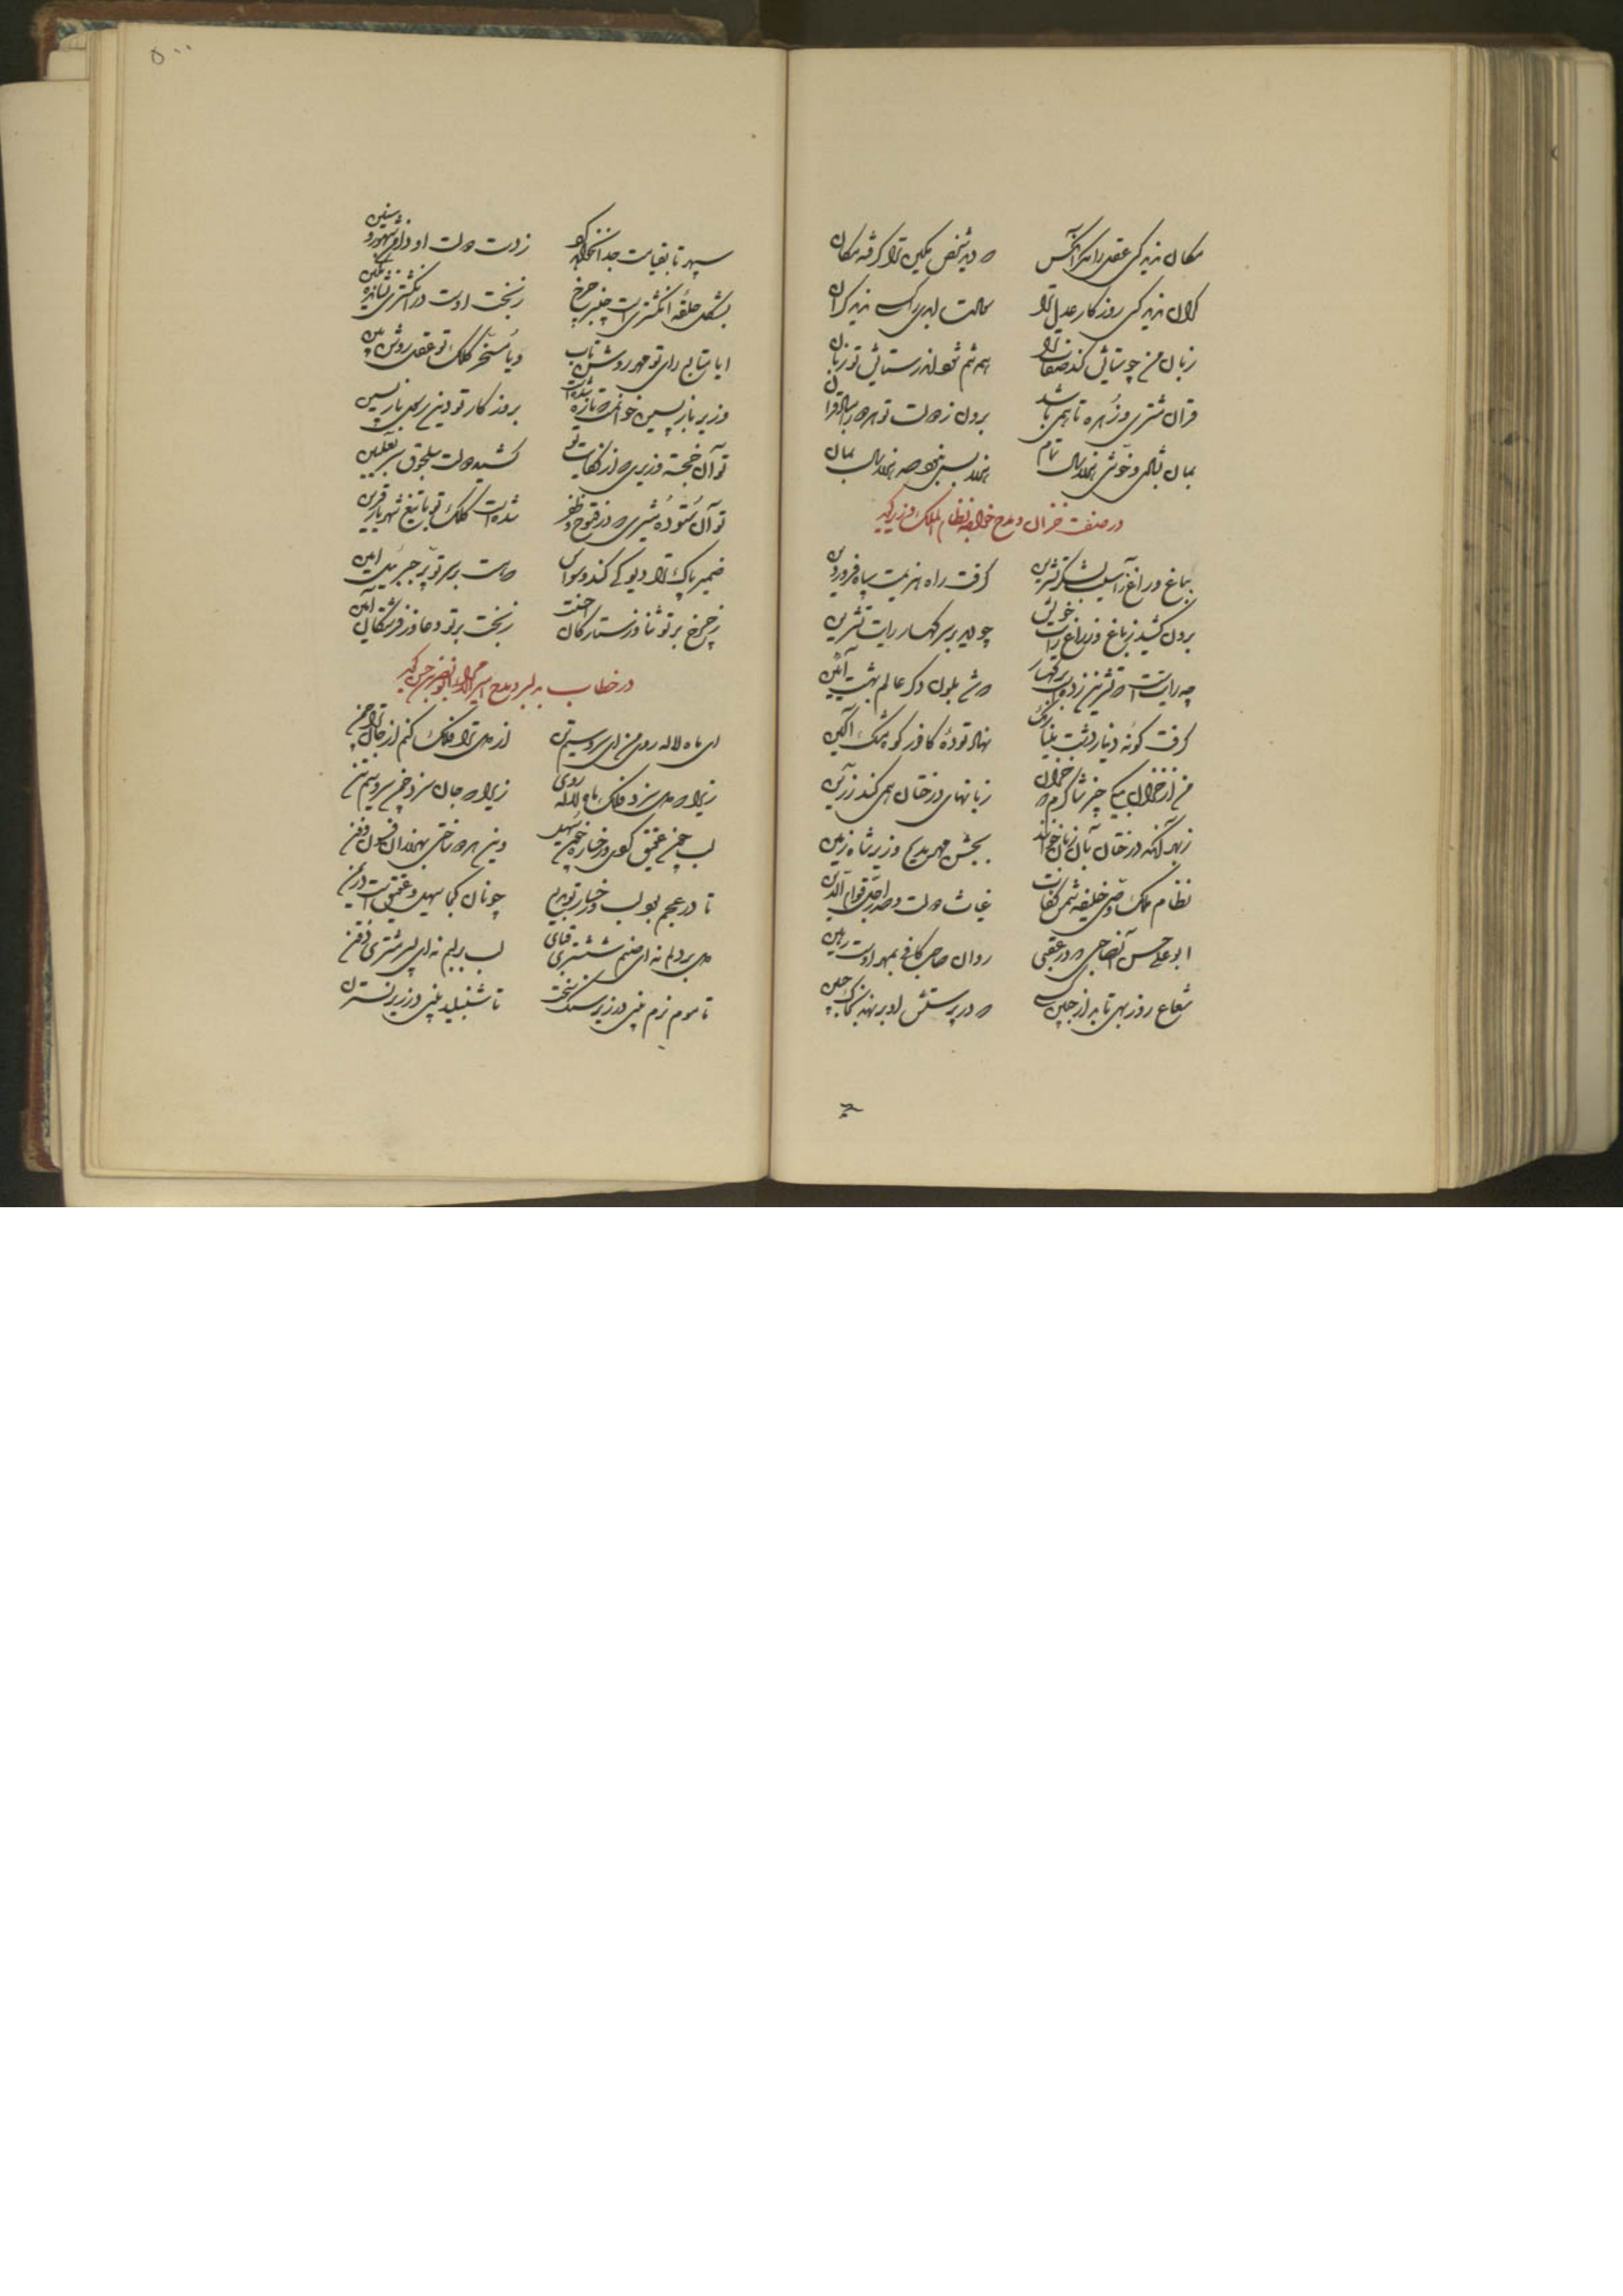 مکان ندید کسی عقل را مگر آنکس
که دید شخص مکین ترا گرفته مکان
کران ندید کسی روزگار عدل ترا
که است ابدی را کسی ندید کران
زبان من چو ستایش کند صفات ترا
همه تنم شود اندر ستایش تو زبان
قران مشتری و زهره تا همی باشد
برون ز دولت تو هر دو را مباد قران
بمان بشاهی و خوشی هزار سال تمام
هزار سال بسی نبود صد هزار سال بمان
در صفت خزان و مدح خواجه نظام الملک وزیر گوید
بباغ و راغ در آسیب لشکر تشرین
گرفت راه هزیمت سپاه فروردین
برون کشید ز باغ و ز راغ رایت خویش
چو دید بر سر کهسار رایت تشرین
چه رایت است که تشرین زده است بر کهسار
که شد بلون دگر عالم بهشت آئین
گرفت گونه دینار دشت مینا رنگ
نهاد توده کافور کوه مشک آگین
من از خزان به یکی چیز شاکرم که خزان
زبانهای درختان همی کند زرین
ز بهر آنکه درختان بآن زبان خوانند
بجشن مهر مدیح وزیر شاه زمین
نظام ملک و رضی خلیفه شمس کفات
غیاث دولت و صدر اجل قوام الدین
ابو علی حسن آن صاحبی که در عقبی
روان صاحب کافی بمهر اوست رهین
شعاع روز بهی تابد از جبین کسی
که در پرستش او بر نهد بخاک جبین
۵۰۰
سپهر تا بقیامت جدا نخواهد کرد
ز دست دولت او دامن شهور و سنین
بشکل حلقه انگشتری است چنبر چرخ
ز بخت اوست در انگشتری نشانده نگین
ایا متابع رای تو مهر روشن تاب
ویا مسخر کلک تو عقل روشن بین
وزیر باز پسین خوانمت که تازه شده است
بروزگار تو دین رسول باز پسین
تو آن خجسته وزیری که از کفایت تو
کشید دولت سلجوق سر بعلیین
تو آن ستوده مشیری که در فتوح و ظفر
شده است کلک تو با تیغ شهریار قرین
ضمیر پاک ترا دیو کی کند وسواس
که هست بر سر تو پر جبرئیل امین
ز چرخ بر تو ثنا وز ستارگان احسنت
ز بخت بر تو دعا وز فرشتگان آمین
در خطاب به دلبر و مدح امیر گوید
ای ماه لاله روی من ای سرو سیمتن
از دل ترا فلک کنم از جان ترا چمن
زیرا که دل سزد فلک ماه لاله روی
زیرا که جان سزد چمن سرو سیمتن
لب چون عقیق کردی و رخساره چون سهیل
وین هر دو ساختی بهزاران فسون و فن
تا در عجم بود لب و رخسار تو پدید
چونان کجا سهیل و عقیق است در یمن
دل بر دلم نه ای صنم ششتری قبای
لب بر لبم نه ای پسر مشتری ذقن
تا موم نرم بینی در زیر سنگ سخت
تا شنبلید بینی در زیر نسترن